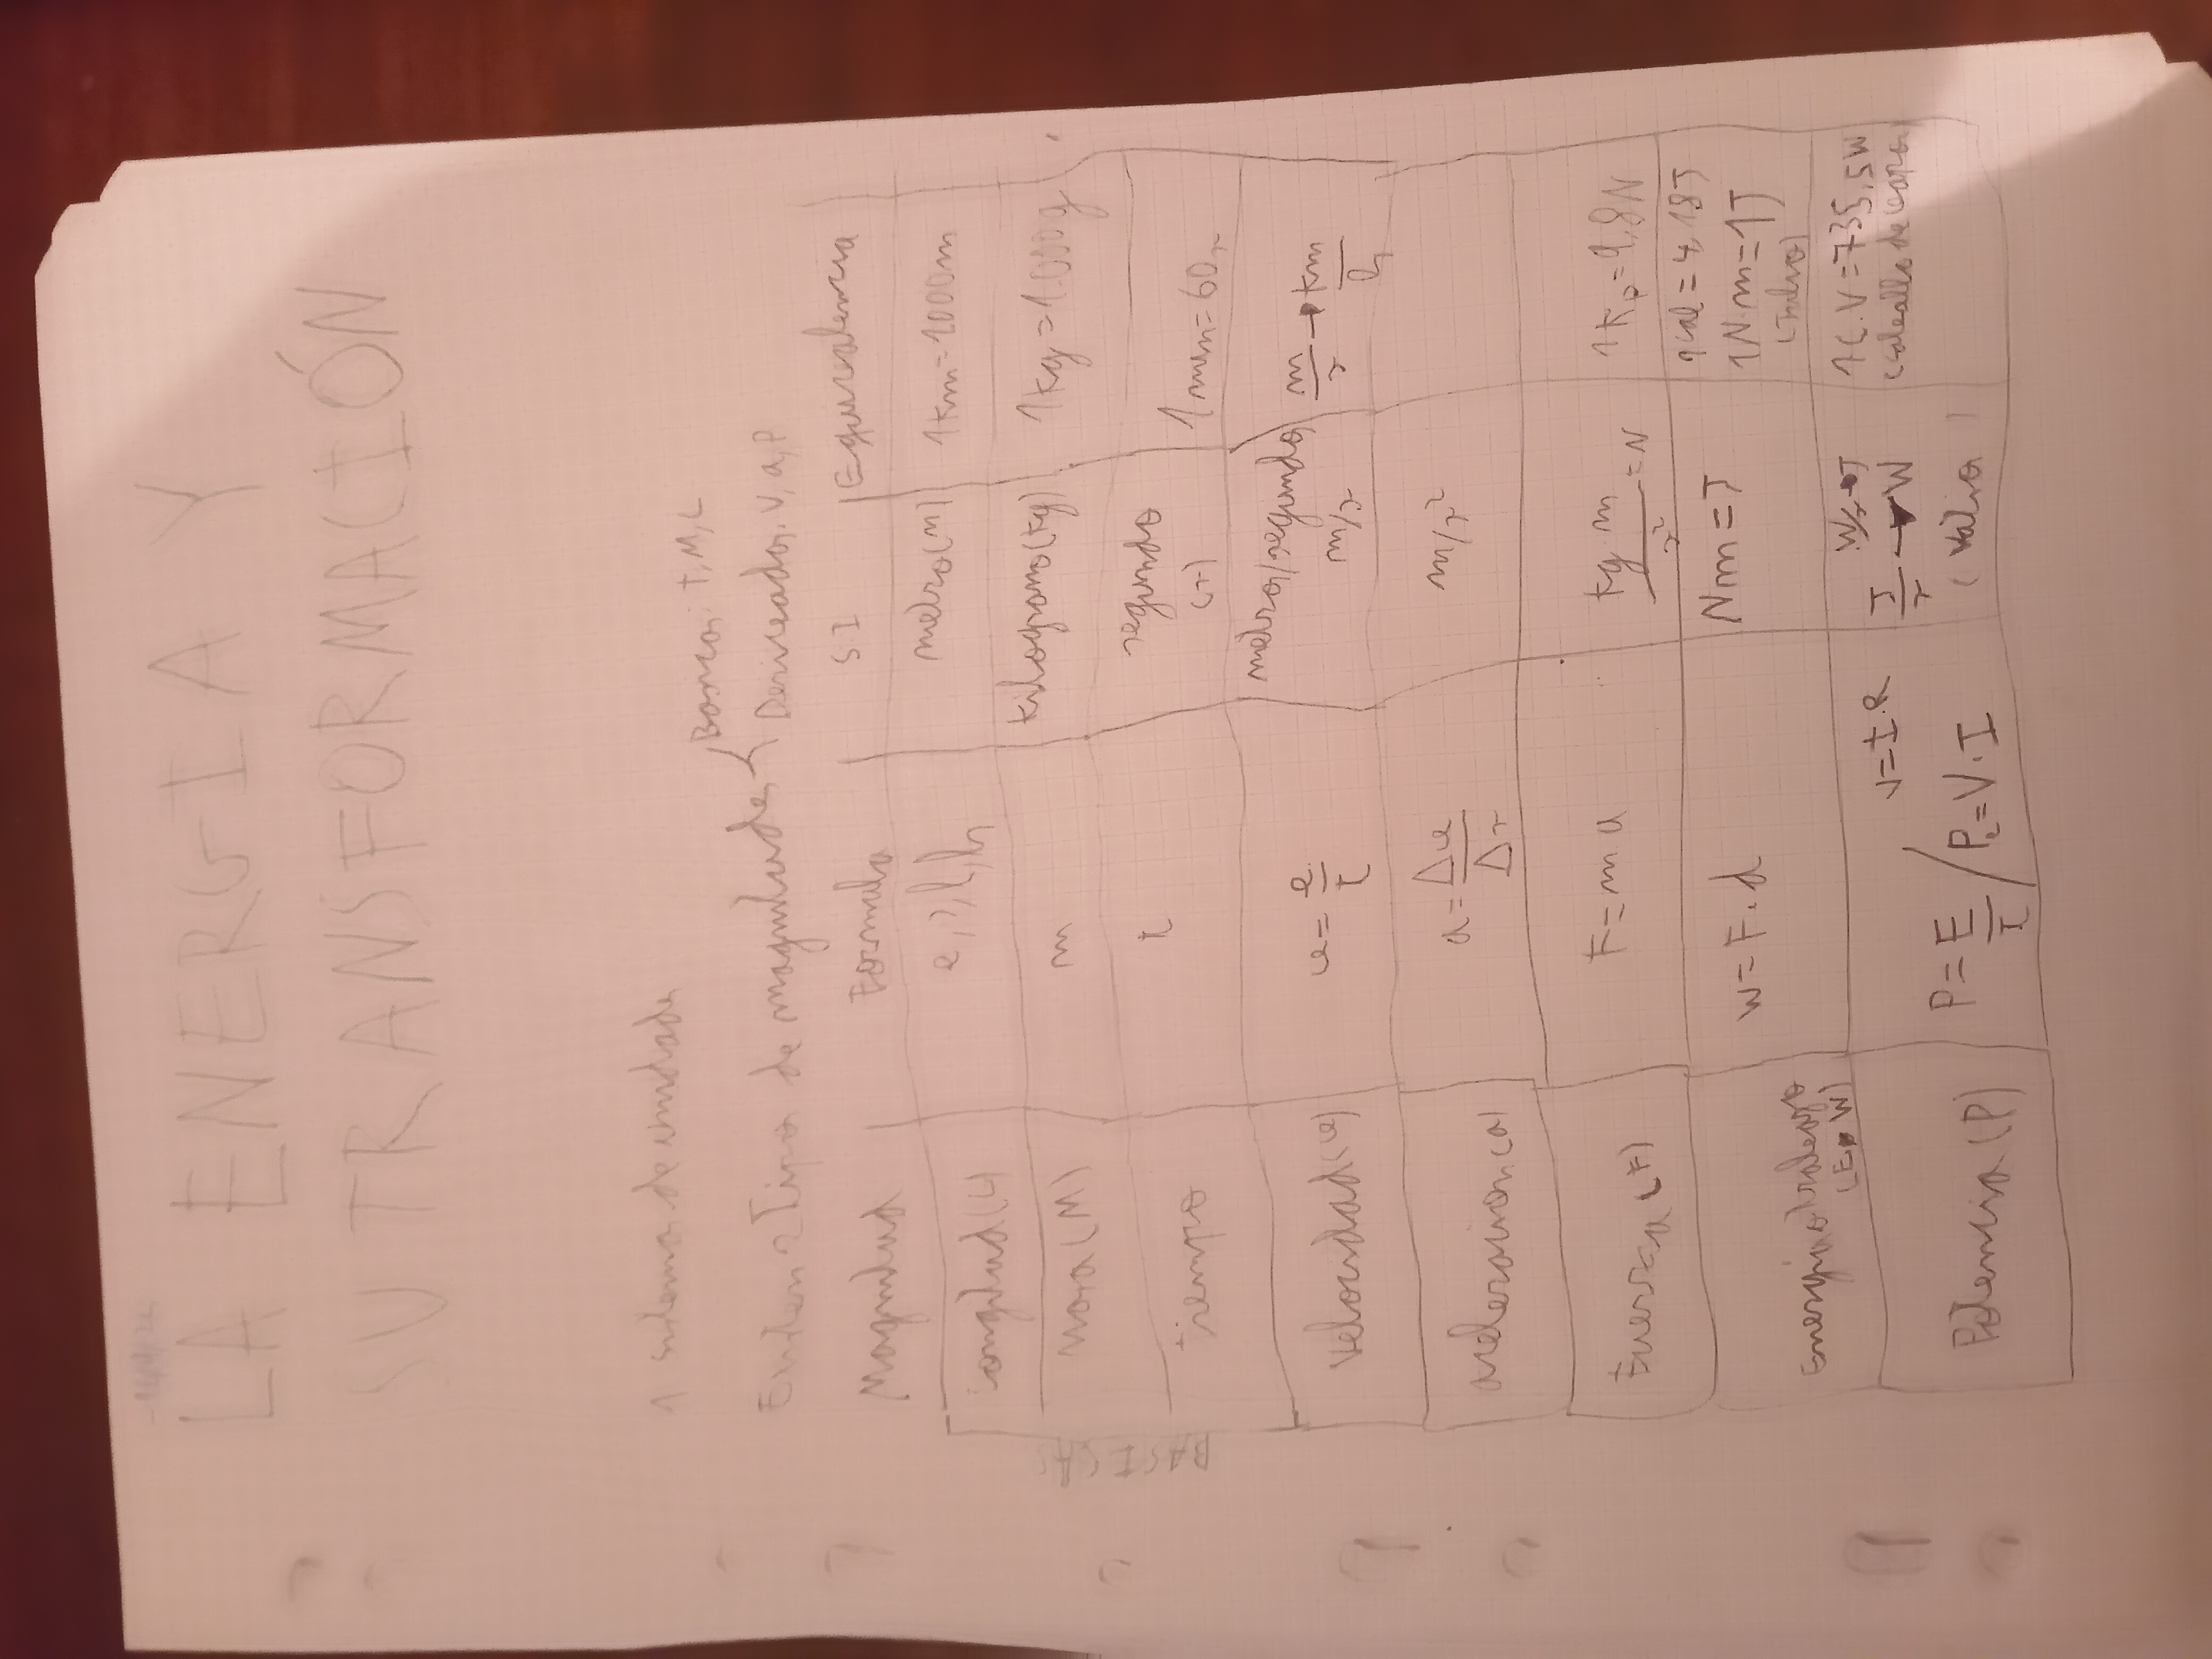 LA ENERGIA Y
SU TRANSFORMACIÓN
1 sistema de unidades
Existen 2 Tipos de magnitudes { Basicas: t, M, L
Derivadas. V, a, P
Magnitud Formula SI Equivalencia
BASICAS
Longitud (L) e, l, h metro (m) 1 km = 1000m
Masa (M) m Kilogramo (kg) 1 kg = 1000g
tiempo t segundo (s) 1 min = 60s
Velocidad (v) v = e/t metros/segundos m/s m/s → km/h
aceleracion (a) a = Δv/Δt m/s²
Fuerza (F) F = m a kg·m/s² = N 1 Kp = 9,8N
Energia o trabajo (E o W) W = F·d Nm = J 1 cal = 4,18J
1N·m = 1J
(Julio)
Potencia (P) P = E/t / P = V·I V = I·R J/s → W W·s → J (vatio) 1 C.V = 735,5W
(caballos de vapor)